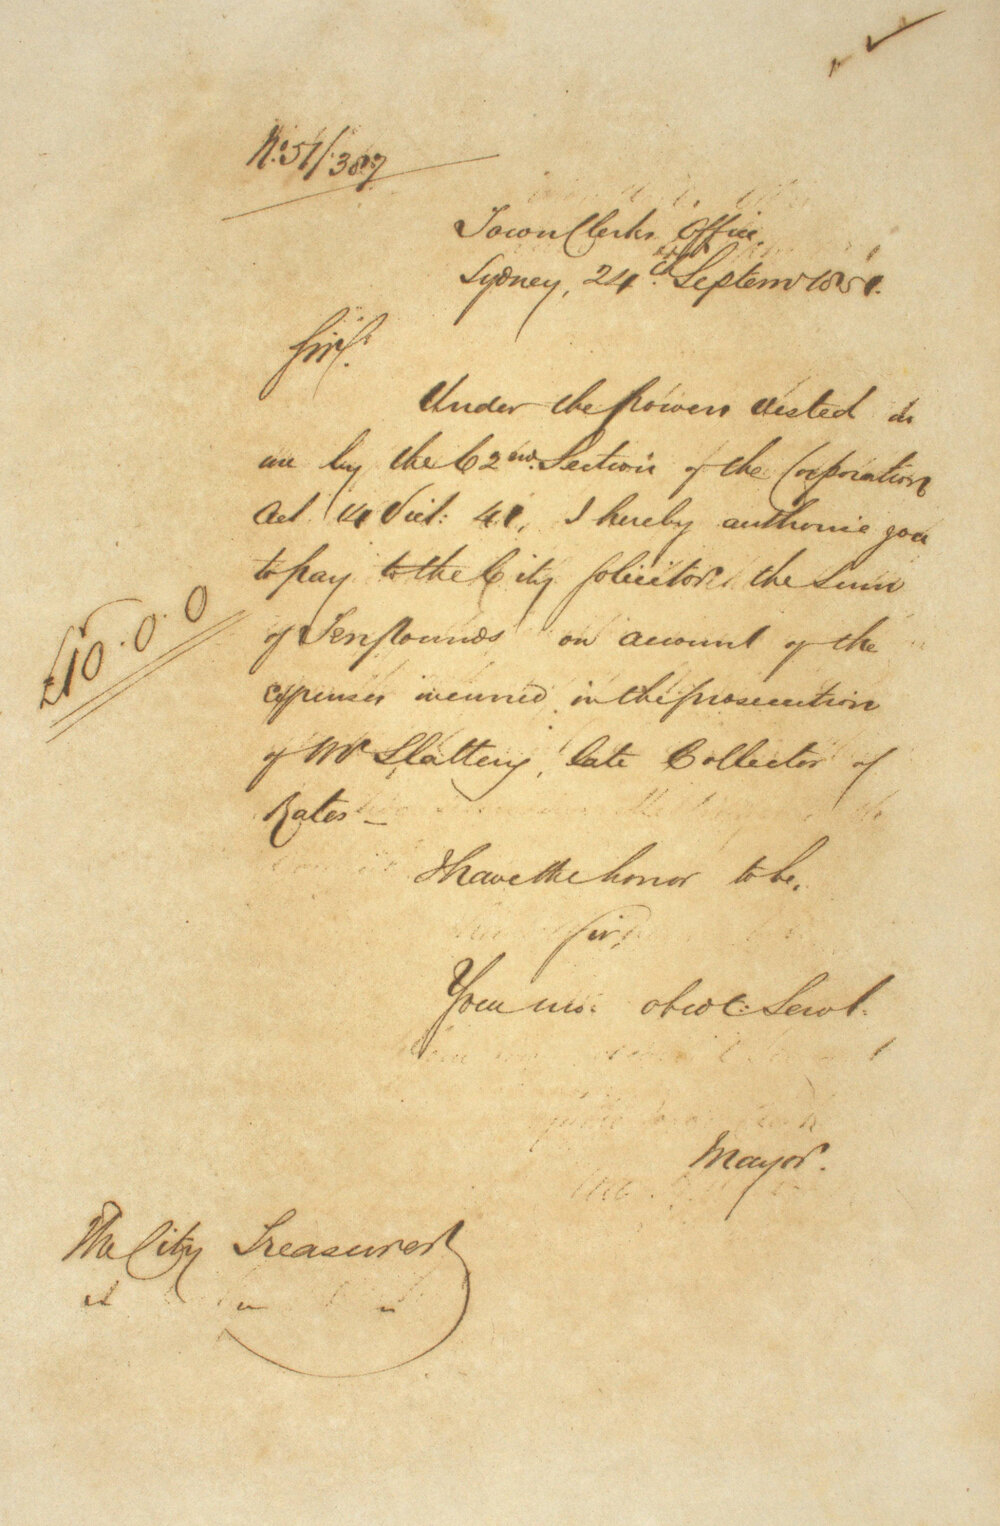 No. 51/387
Town Clerks Office,
Sydney, 24th Septemr 1851.
Sir,
Under the powers vested in
me by the 62nd Section of the Corporation
Act 14 Vict: 41, I hereby authorise you
to pay to the City Solicitor the Sum
of Ten pounds on account of the
expenses incurred in the prosecution
of Mr Slattery, late Collector of
Rates —
£10.0.0
I have the honor to be,
Sir,
Your mo: obdt: Servt.
Mayor.
The City Treasurer